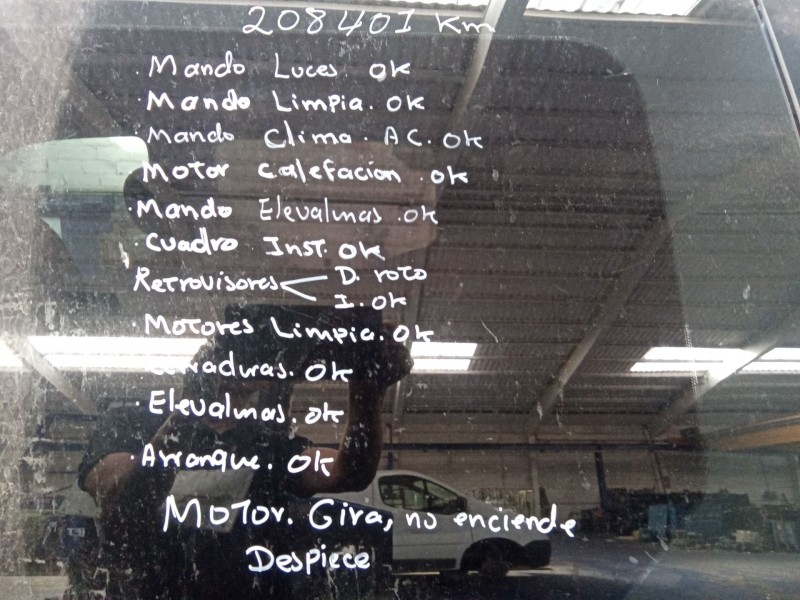 208401 Km
· Mando Luces. OK
· Mando Limpia. OK
· Mando Clima. AC. OK
· Motor Calefacion. OK
· Mando Elevalunas. OK
· Cuadro Inst. OK
Retrovisores < D. roto
I. OK
· Motores Limpia. OK
Cerraduras. OK
· Elevalunas. OK
· Arranque. OK
Motor. Gira, no enciende
Despiece